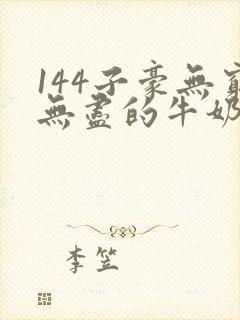 144子豪無窮
無盡的牛奶
李笠